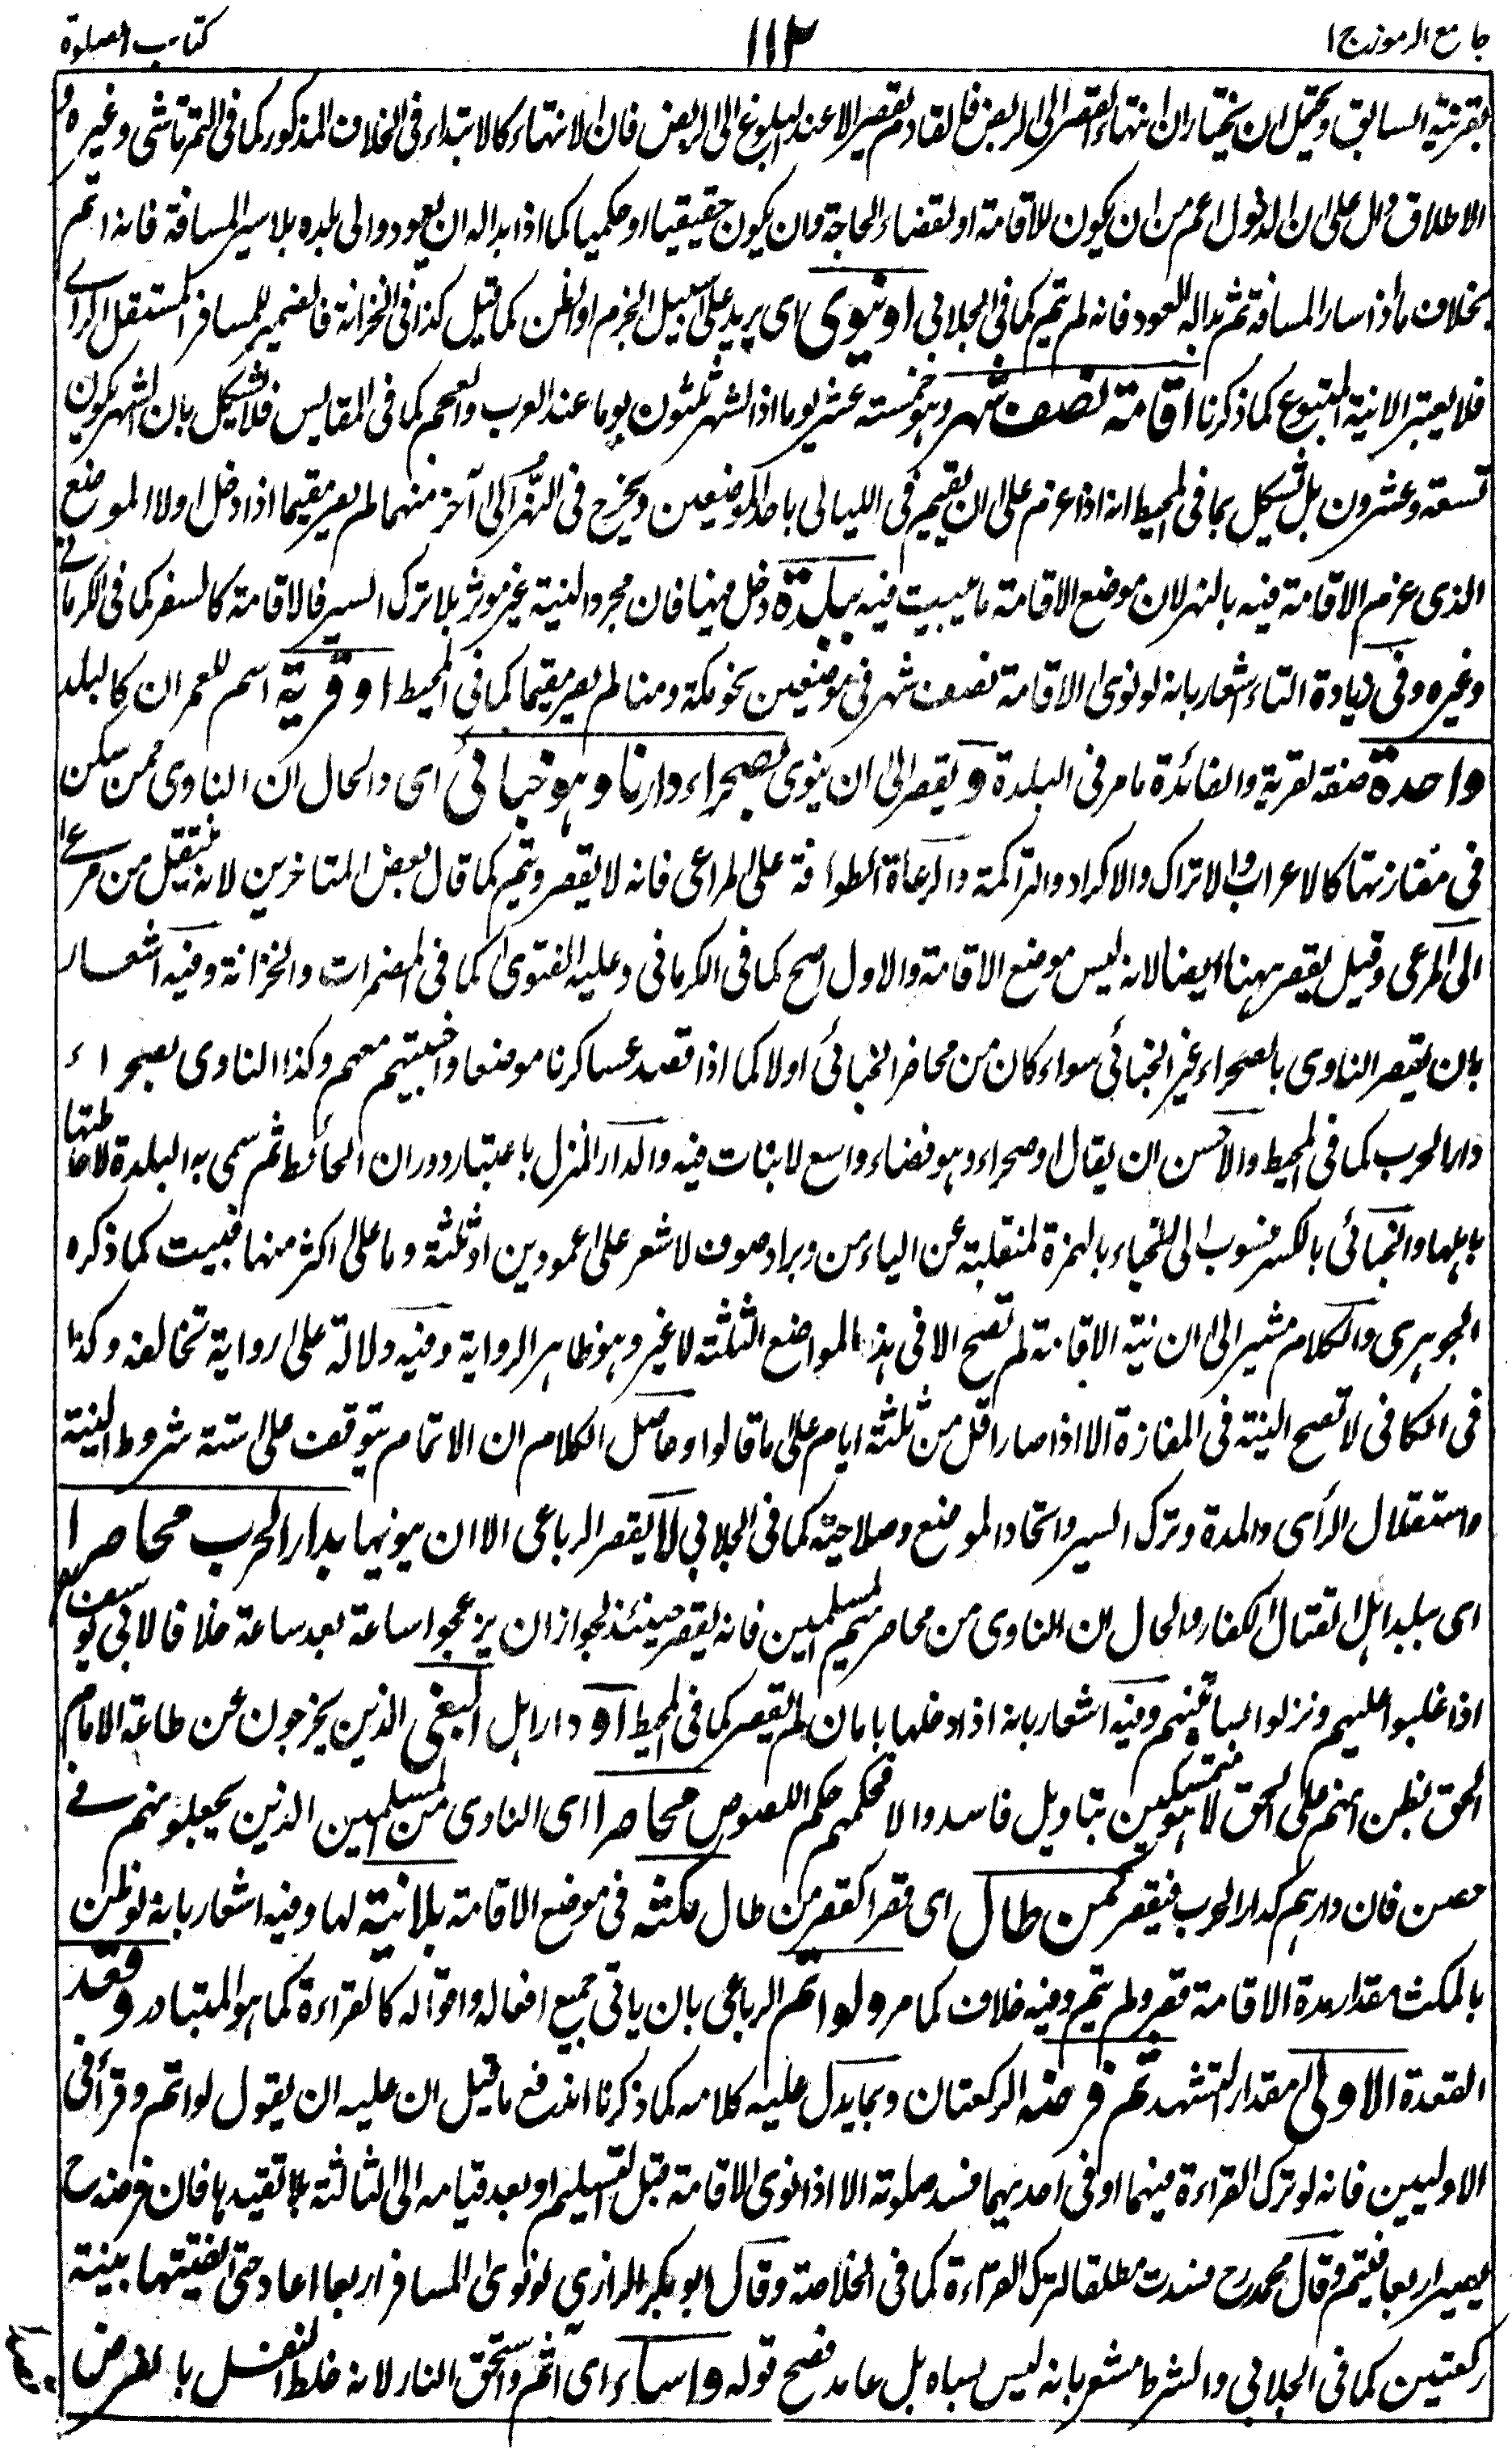 جامع الرموز ج ١
١١٢
كتاب الصلوة
بقرينة السابق ويحتمل ان يختار ان انتهاء القصر الى الربض فلقادم يقصر الا عند البلوغ الى الربض فان الانتهاء كالابتداء فى الخلاف المذكور كما فى التمرتاشى وغيره و
الاطلاق دال على ان الدخول اعم من ان يكون للاقامة او لقضاء الحاجة وان يكون حقيقيا او حكميا كما اذا بدا له ان يعود والى بلده بلا سير المسافة فانه اتم
بخلاف ما اذا سار المسافة ثم بدا له العود فانه لم يتم كما فى الجلابى او ينوى اى يريد على سبيل الجزم او الظن كما قيل كذا فى الخزانة فالضمير للمسافر المستقل الراے
فلا يعتبر الا نية المتبوع كما ذكرنا اقامة نصف شهر وهو خمسته عشر يوما اذ الشهر ثلثون يوما عند العرب والعجم كما فى المقايس فلا يشكل بان الشهر يكون
تسعة وعشرون بل يشكل بما فى المحيط انه اذا عزم على ان يقيم فى الليالى باحد الموضعين ويخرج فى النهر الى آخر منهما لم يصر مقيما اذا دخل اولا الموضع
الذى عزم الاقامة فيه بالنهر لان موضع الاقامة ما يبيت فيه ببلدة دخل فيها فان مجرد النية غير موثر بلا ترك السير فالاقامة كالسفر كما فى الكرمانے
وغيره وفى زيادة التاء اشعار بانه لو نوى الاقامة نصف شهر فى موضعين نحو مكة ومنا لم يصر مقيما كما فى المحيط او قرية اسم للعمران كالبلد
واحدة صفة لقرية والفائدة ما مر فى البلدة و يقصر الى ان ينوى بصحراء دارنا وهو خبائى اى والحال ان الناوى ممن سكن
فى مفازتها كالاعراب والاتراك والاكراد والتراكمة والرعاة الطوافة على المراعى فانه لا يقصر ويتم كما قال بعض المتاخرين لانه ينتقل من مرعے
الى المرعى وقيل يقصر ههنا ايضا لانه ليس موضع الاقامة والاول اصح كما فى الكرمانى وعليه الفتوى كما فى المضمرات والخزانة وفيه اشعار
بان يقصر الناوى بالصحراء غير الخبائى سواء كان من محاضر الخبائى او لا كما اذا قصد عساكرنا موضعا واخبيتهم معهم وكذا الناوى بصحراء
دار الحرب كما فى المحيط والاحسن ان يقال او صحراء وهو فضاء واسع لا بنات فيه والدار المنزل باعتبار دوران الحائط ثم سمى به البلدة لاحاطتها
باهلها والخبائى بالكسر منسوب الى الخباء بالهمزة المنقلبة عن الياء من وبر او صوف لا شعر على عمودين او ثلثة وما على اكثر منها فبيت كما ذكره
الجوهرى والكلام مشير الى ان نية الاقامة لم تصح الا فى هذه المواضع الثلثة لا غير وهو ظاهر الرواية وفيه دلالة على رواية تخالفه وكذا
فى الكافى لا تصح النية فى المفازة الا اذا صار اقل من ثلثة ايام على ما قالوا وحاصل الكلام ان الاتمام يتوقف على ستة شروط النية
واستقلال الرأى والمدة وترك السير واتحاد الموضع وصلاحيته كما فى الجلابى لا يقصر الرباعى الا ان ينويها بدار الحرب محاصرا
اى ببلد اهل القتال الكفار والحال ان الناوى من محاصريهم المسلمين فانه يقصر حينئذ لجواز ان يزعجوا ساعة بعد ساعة خلافا لابى يوسف
اذا غلبوا عليهم ونزلوا بمساكنهم وفيه اشعار بانه اذا دخلها بامان لم يقصر كما فى المحيط او دار اهل البغى الذين يخرجون عن طاعة الامام
الحق بظن انهم على الحق لا هو متمسكين بتاويل فاسد والا فحكمهم حكم اللصوص محاصرا اى الناوى من المسلمين الذين يجعلونهم فے
حصن فان دارهم كدار الحرب فيقصر كمن طال اى قصرا كقصر من طال مكثه فى موضع الاقامة بلا نية لها وفيه اشعار بانه لو ظن
بالمكث مقدار مدة الاقامة قصر ولم يتم وفيه خلاف كما مر ولو اتم الرباعى بان ياتى جميع افعاله واقواله كالقراءة كما هو المتبادر وقعد
القعدة الاولى مقدار التشهد تم فرضه الركعتان وبما يدل عليه كلامه كما ذكرنا اندفع ما قيل ان عليه ان يقول لو اتم وقرأ فى
الاوليين فانه لو ترك القراءة فيهما او فى احديهما فسد صلوته الا اذا نوى الاقامة قبل التسليم او بعد قيامه الى الثالثة بلا تقيدها فان فرضه ح
يصير اربعا فيتم وقال محمد رح فسدت مطلقا لترك القراءة كما فى الخلاصة وقال ابو بكر الرازى لو نوى المسافر اربعا اعاد حتى بنية
ركعتين كما فى الجلابى والشرط مشعر بانه ليس بساه بل عامد فصح قوله واساء اى اثم واستحق النار لانه خلط النفل بالفرض